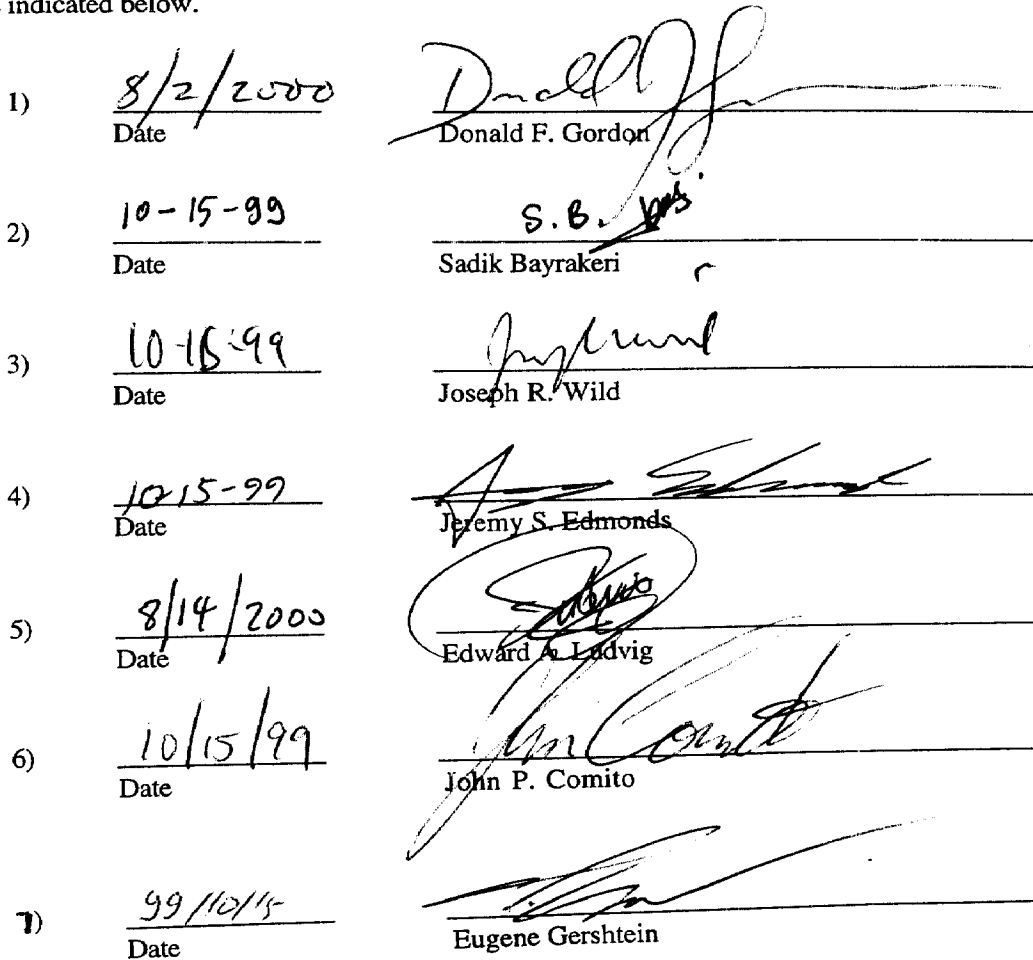 indicated below.
1) 8/2/2000 Donald
Date Donald F. Gordon
2) 10-15-99 S.B.
Date Sadik Bayrakeri
3) 99
Date Joseph R. Wild
4) 10-15-99
Date Jeremy S. Edmonds
5) 8/14/2000
Date Edward A. Ludvig
6) 10/15/99 John Comito
Date John P. Comito
7) 99/10/15
Date Eugene Gershtein